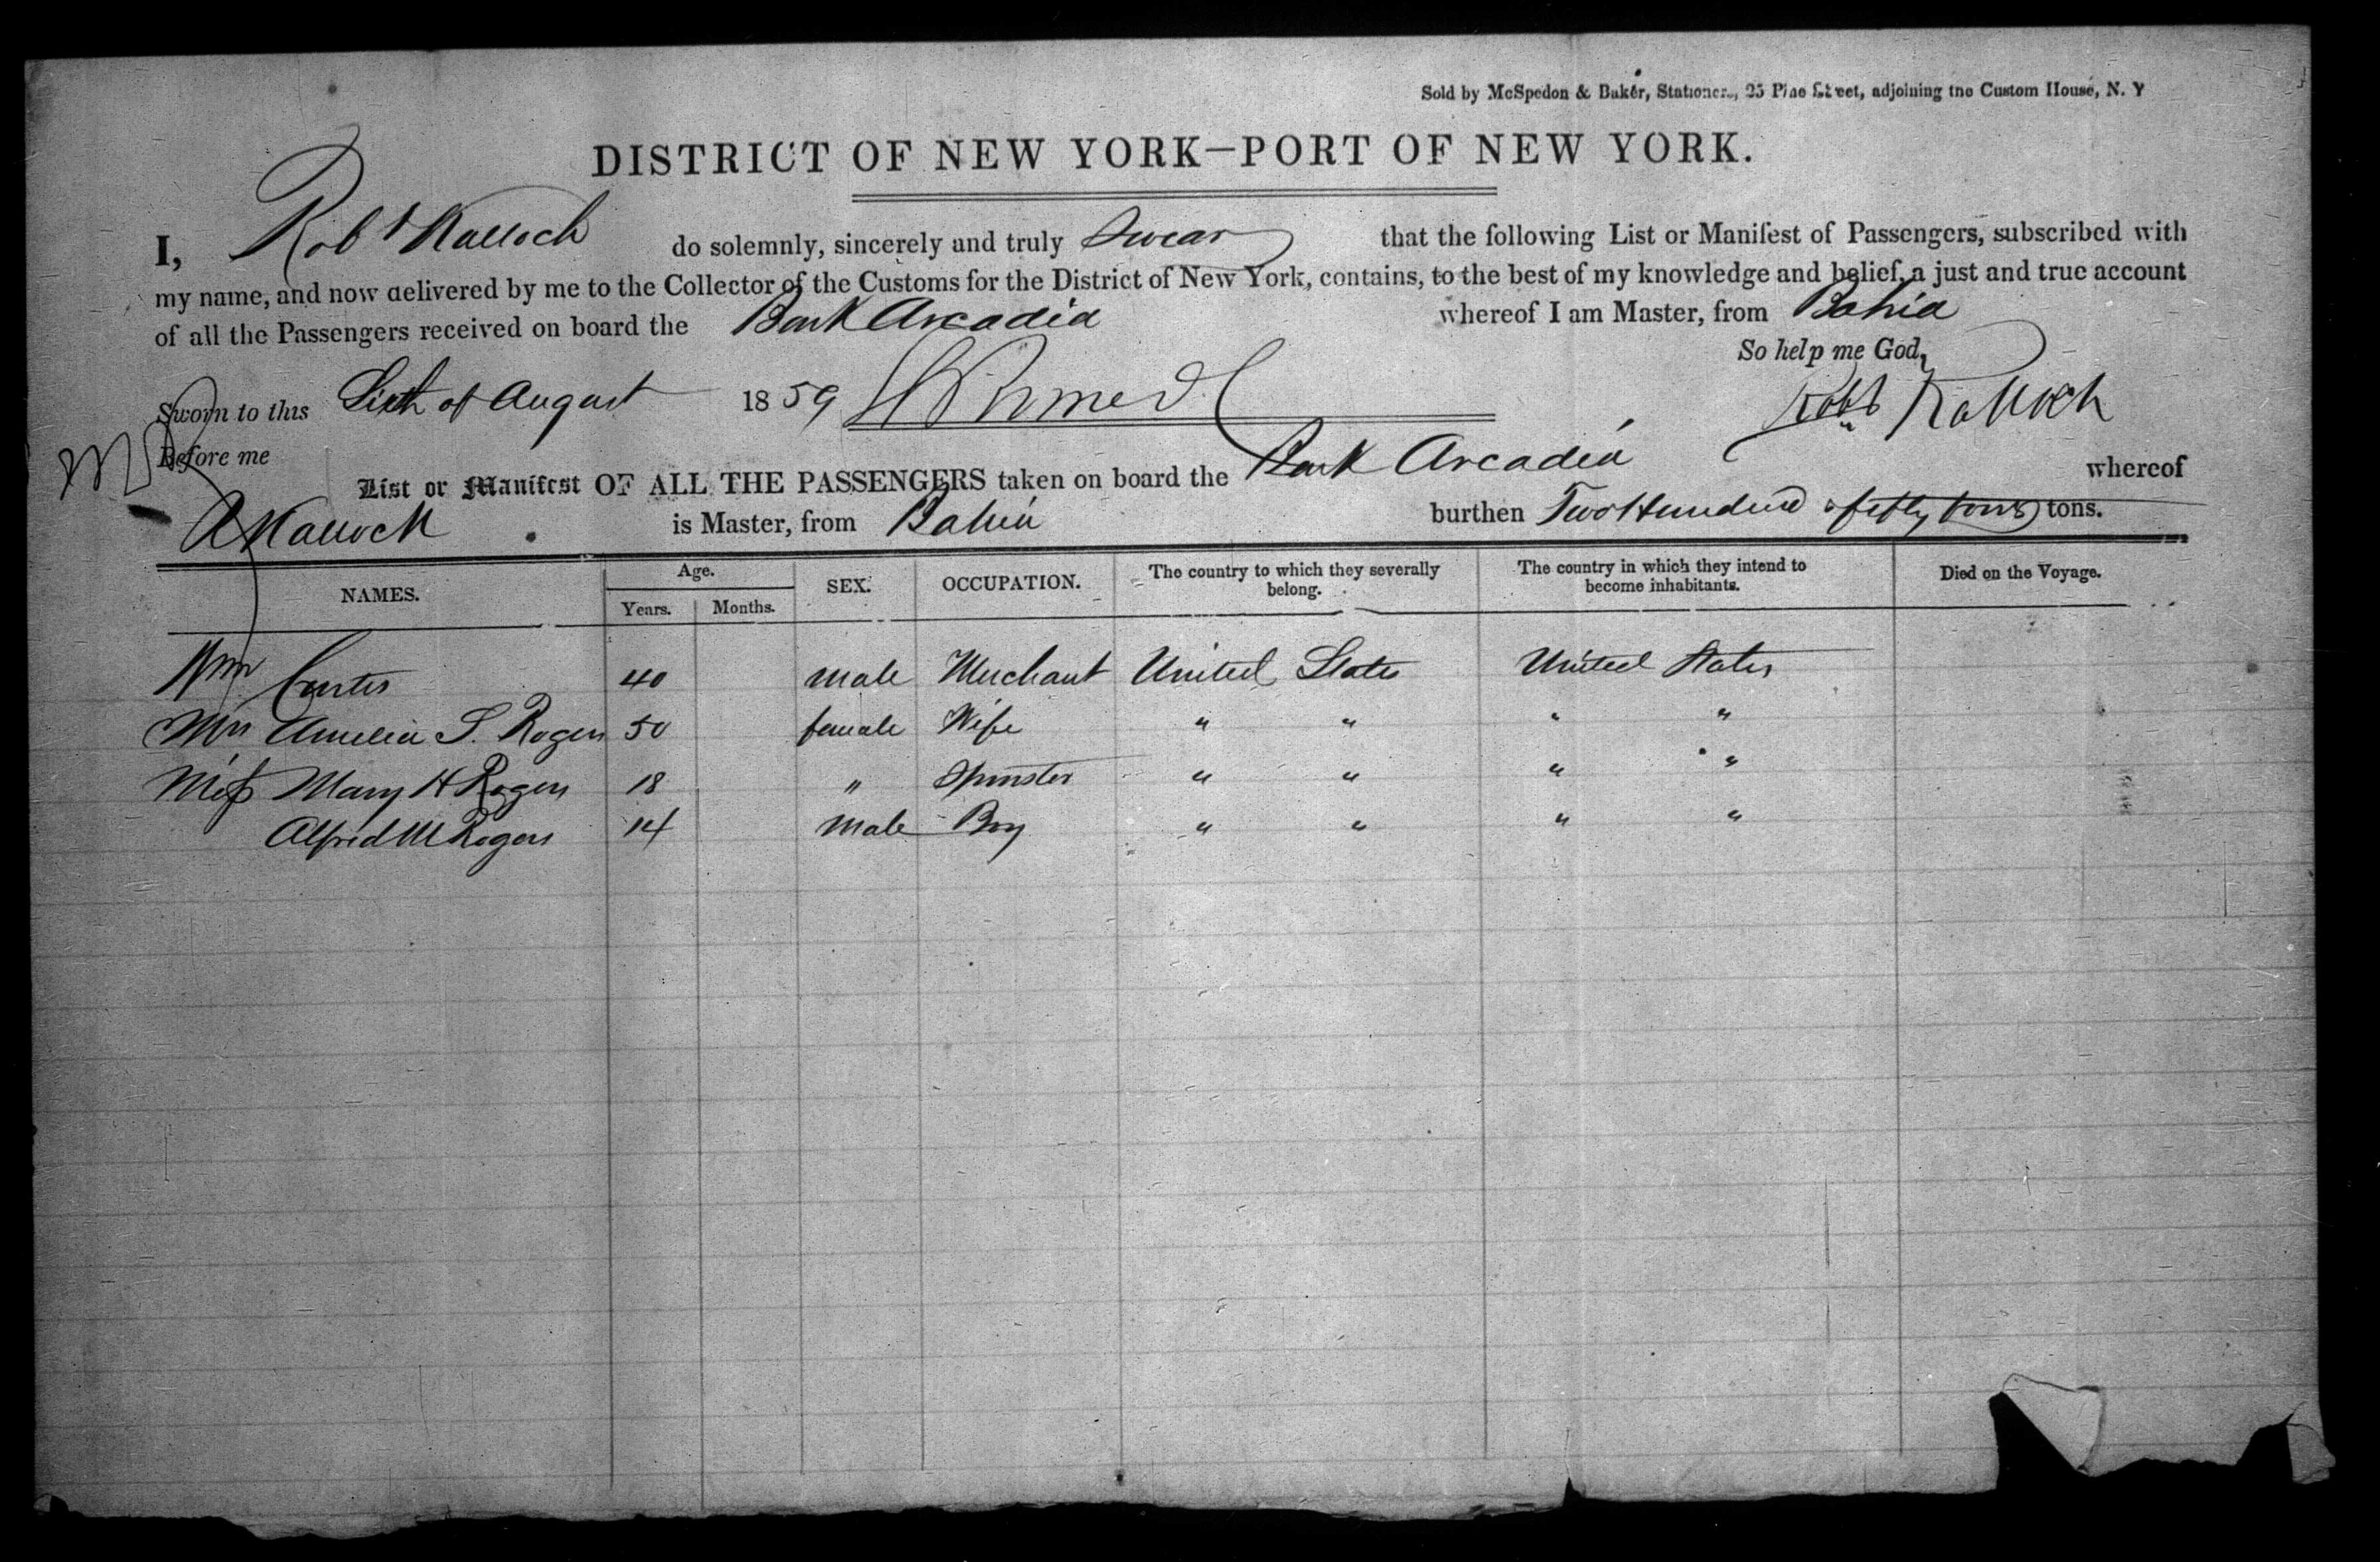 Sold by McSpedon & Baker, Stationers, 25 Pine Street, adjoining the Custom House, N. Y
DISTRICT OF NEW YORK—PORT OF NEW YORK.
I, Robt Kalloch do solemnly, sincerely and truly Swear that the following List or Manifest of Passengers, subscribed with
my name, and now delivered by me to the Collector of the Customs for the District of New York, contains, to the best of my knowledge and belief, a just and true account
of all the Passengers received on board the Bark Arcadia whereof I am Master, from Bahia
So help me God,
Sworn to this Sixth of August 1859 Robt Kalloch
Before me
List or Manifest OF ALL THE PASSENGERS taken on board the Bark Arcadia whereof
R Kalloch is Master, from Bahia burthen Two Hundred & fifty tons tons.
NAMES. Age. Years. Months. SEX. OCCUPATION. The country to which they severally belong. The country in which they intend to become inhabitants. Died on the Voyage.
Wm Curtis 40 male Merchant United States United States
Mrs Amelia S. Rogers 50 female Wife " " " "
Miss Mary H Rogers 18 " Spinster " " " "
Alfred M Rogers 14 male Boy " " " "